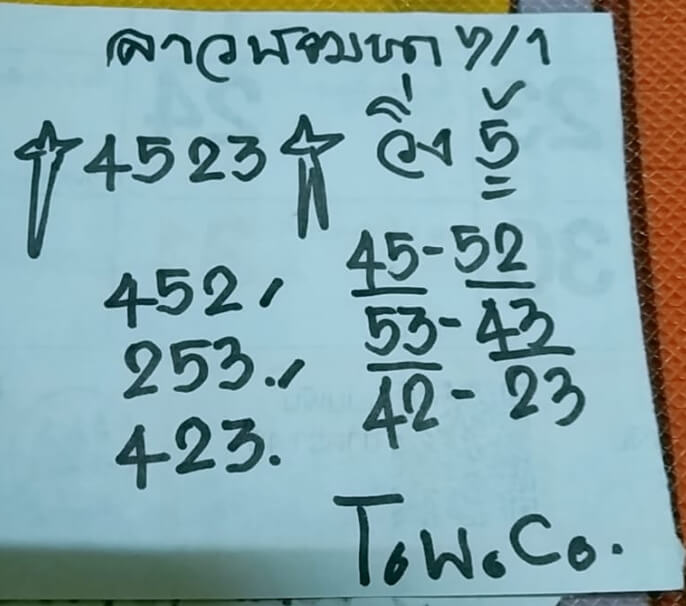 ลาวพัฒนา 7/1
4523 วิ่ง 5
452, 45-52
253., 53-43
423. 42-23
T.W.Co.